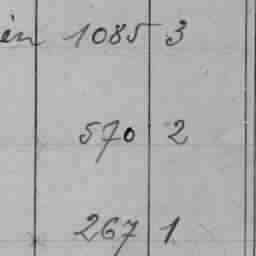 én 1085 3
570 2
267 1